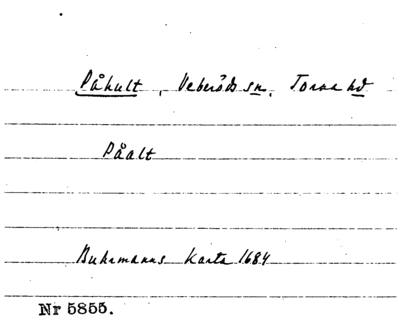 Påhult, Veberöds sn, Torna hd
Påalt
Buhrmanns Karta 1684
Nr 5855.